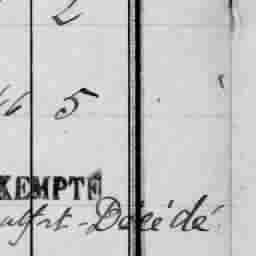 2
6 5
EXEMPTÉ
alfort - Décédé